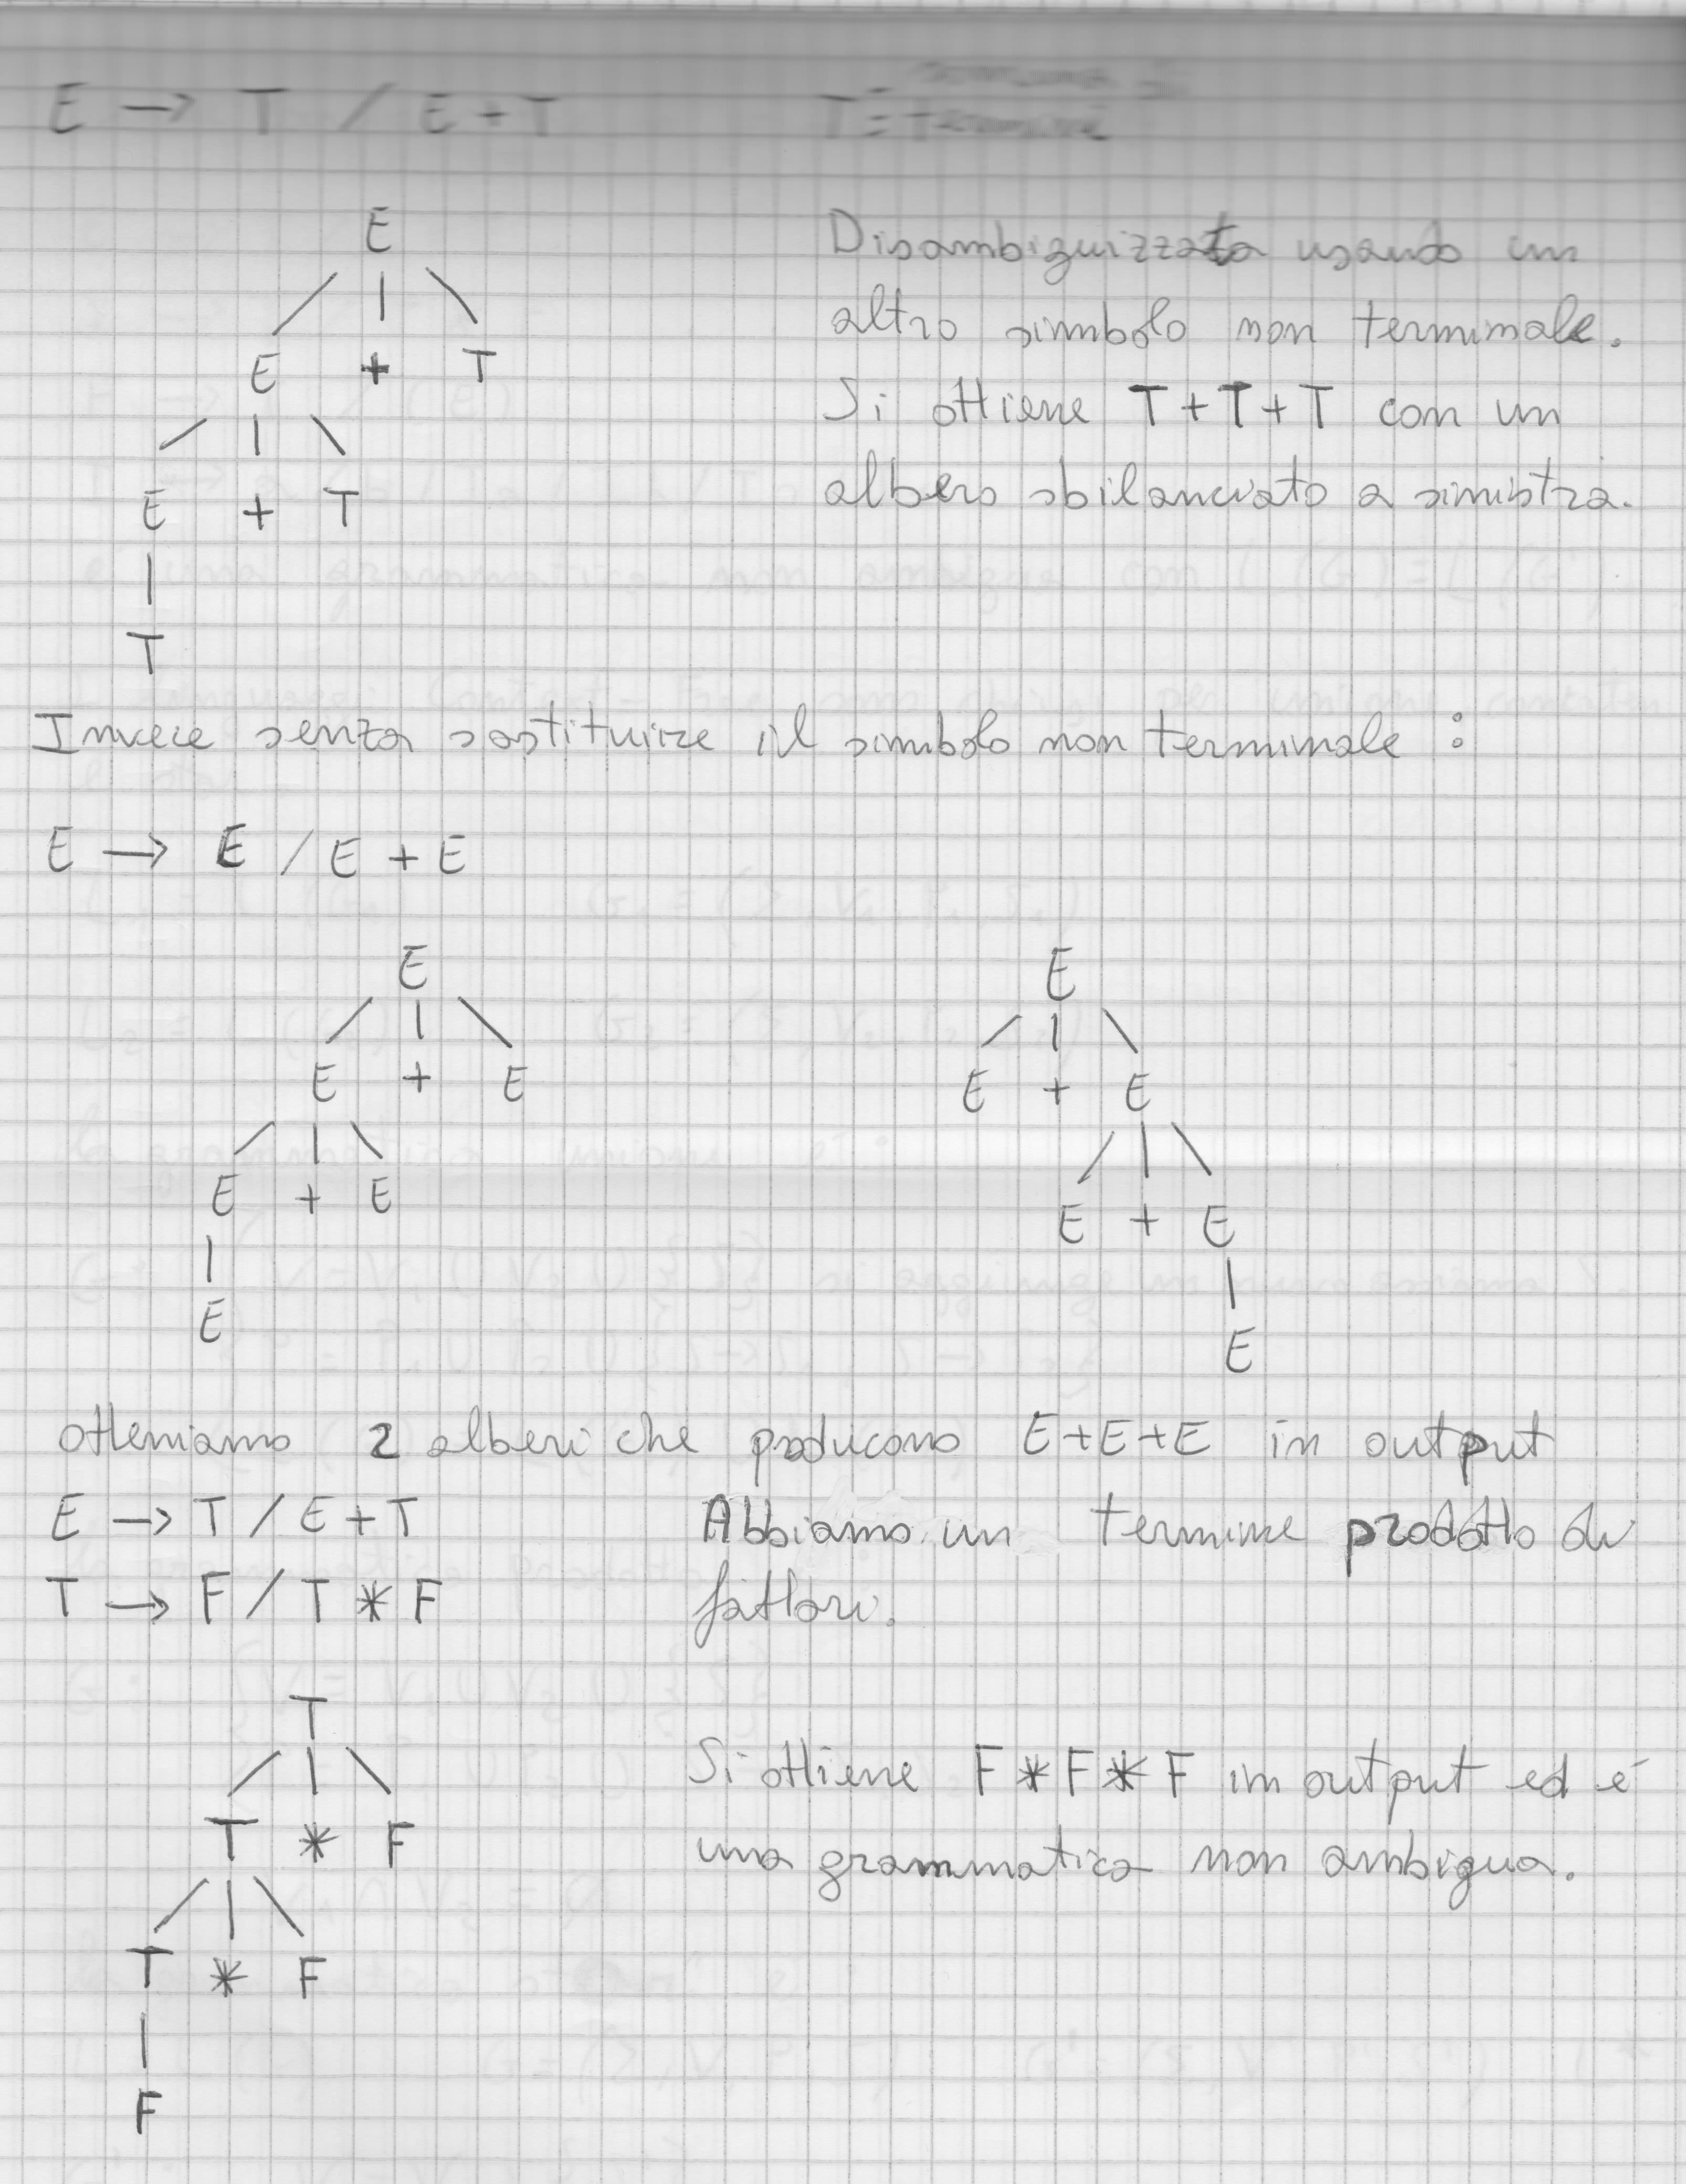 E → T / E + T
T = termine
E
E + T
E + T
T
Disambiguizzata usando un
altro simbolo non terminale.
Si ottiene T + T + T con un
albero sbilanciato a sinistra.
Invece senza sostituire il simbolo non terminale :
E → E / E + E
E
E + E
E + E
E
E
E + E
E + E
E
otteniamo 2 alberi che producono E+E+E in output
E → T / E + T
T → F / T * F
Abbiamo un termine prodotto di
fattori.
T
T * F
T * F
F
Si ottiene F * F * F in output ed é
una grammatica non ambigua.